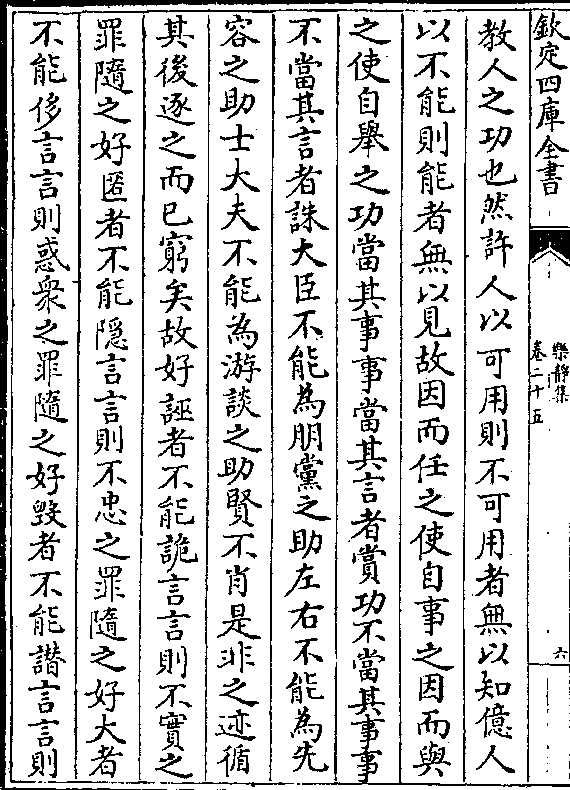 欽定四庫全書
樂靜集
卷二十五
六
教人之功也然許人以可用則不可用者無以知億人
以不能則能者無以見故因而任之使自事之因而與
之使自舉之功當其事事當其言者賞功不當其事事
不當其言者誅大臣不能為朋黨之助左右不能為先
容之助士大夫不能為游談之助賢不肖是非之迹循
其後逐之而已窮矣故好誣者不能詭言言則不實之
罪隨之好匿者不能隱言言則不忠之罪隨之好大者
不能侈言言則惑衆之罪隨之好毀者不能譛言言則